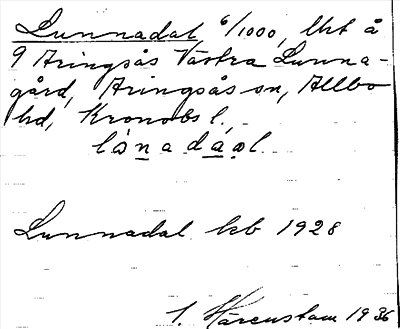 Lunnadal 6/1000, Uht å
9 Aringsås Västra Lunna-
gård, Aringsås sn, Allbo
hd, Kronobs l.
lònadạọl.
Lunnadal kb 1928
1. Härenstam 1936